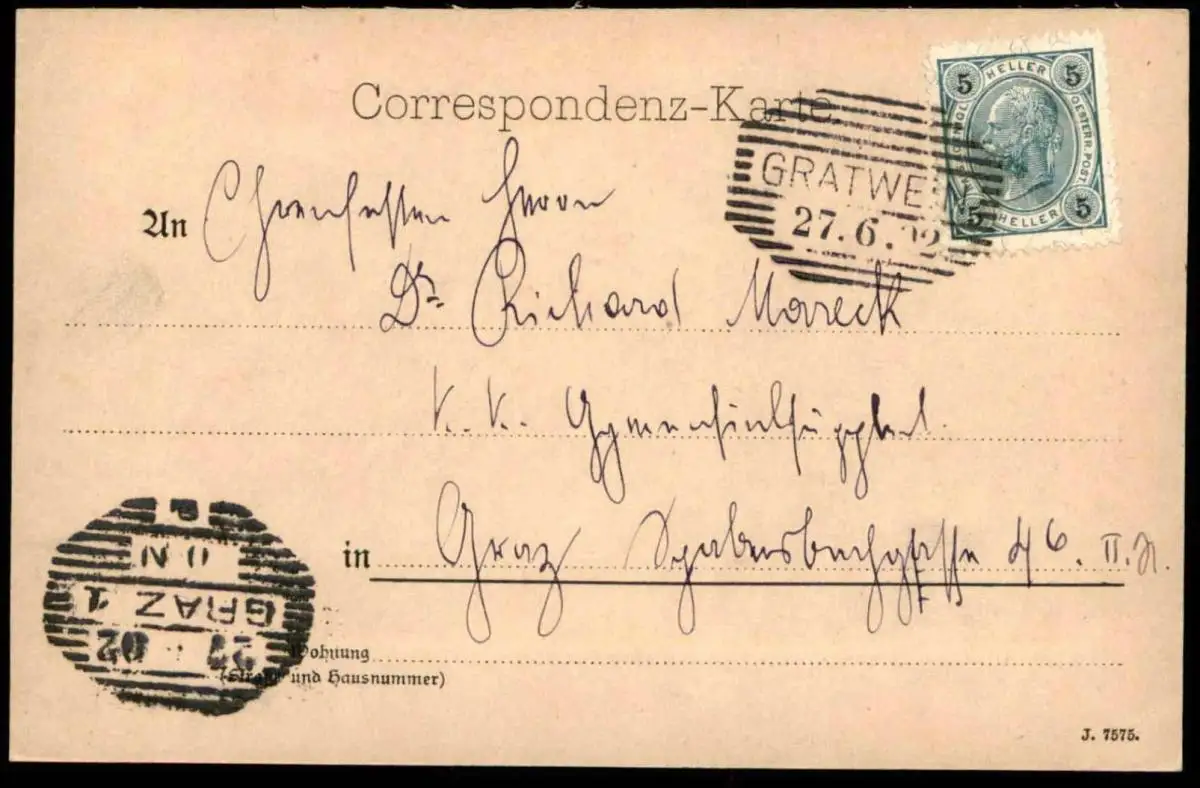 Correspondenz-Karte.
5 HELLER 5
OESTERR. POST.
5 HELLER 5
GRATWE
27.6.02
An Ehrenfesten Herrn
Dr. Richard Mareck
K. K. Gymnasialsupplent
in Graz 46. II.
Wohnung
(Straße und Hausnummer)
GRAZ 1
27 02
J. 7575.